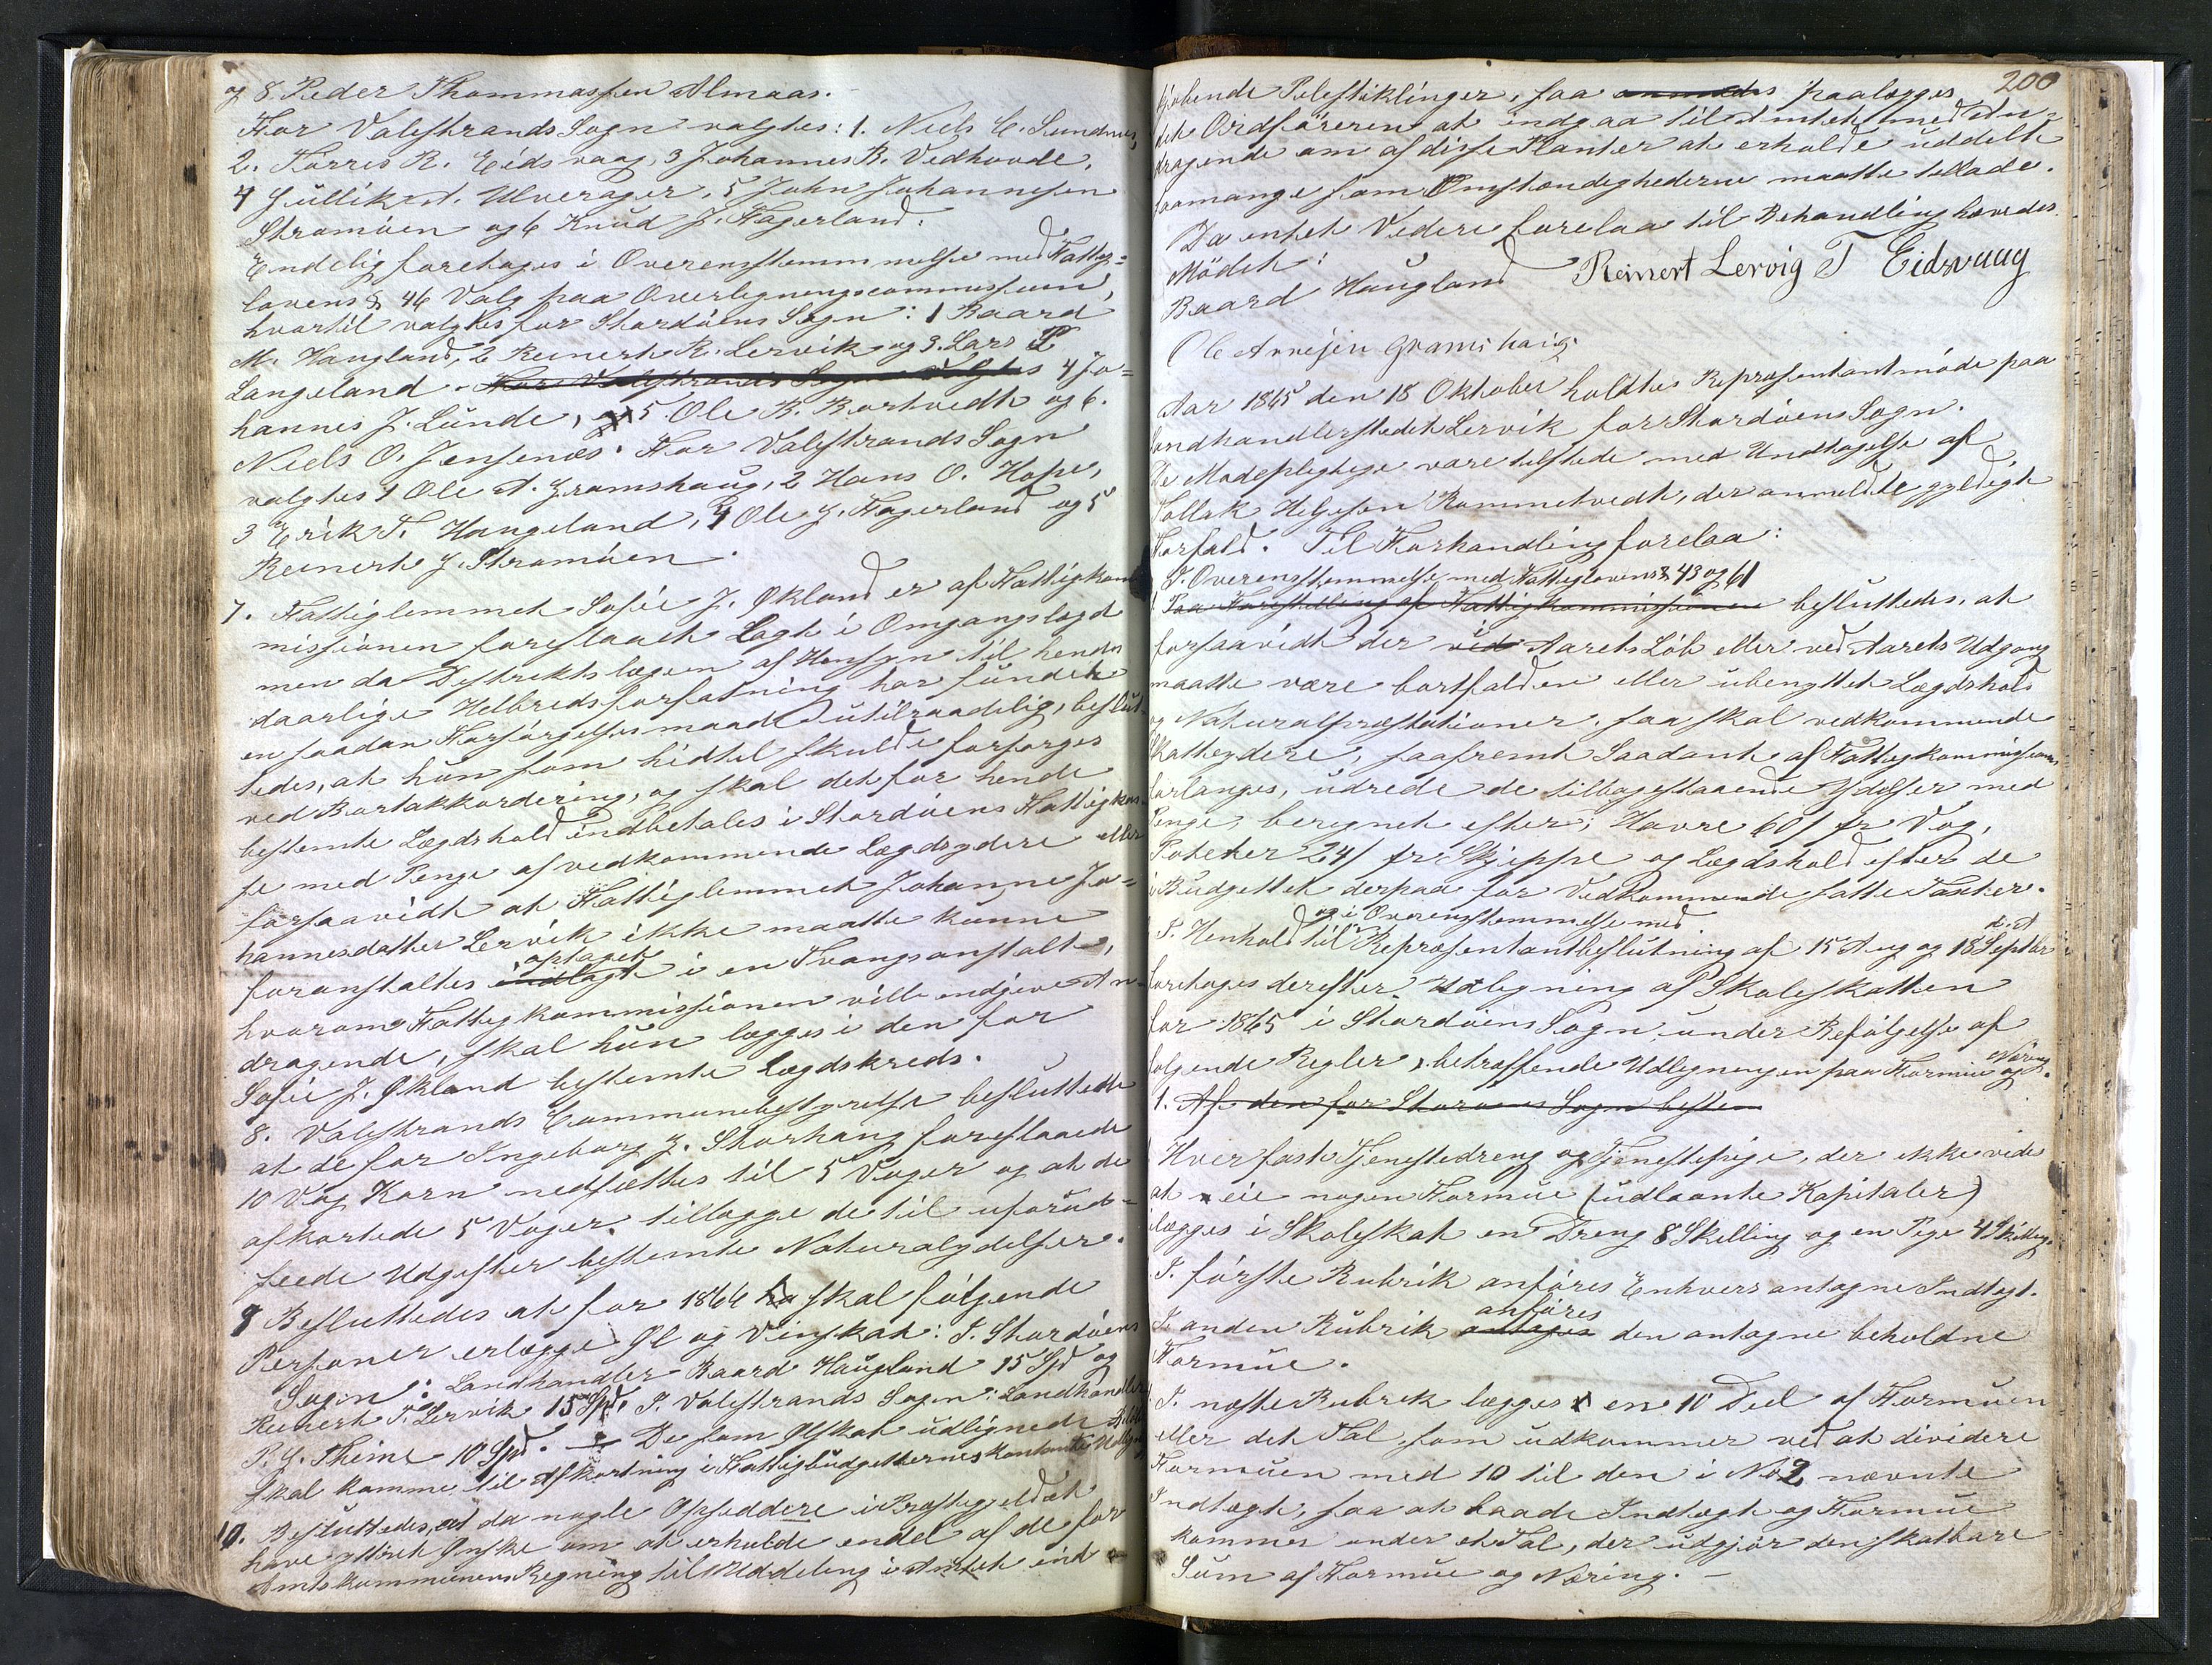 og 8. Peder Thommassen Almaas.
For Valestrands Sogn valgtes: 1. Niels C. Sundnes,
2. Torres R. Eidsvaag, 3 Johannes B. Vedhovde,
4 Gullik A. Ulverager, 5 John Johannesen
Strømøen og 6 Knud J. Fagerland.
Endelig foretoges i Overensstemmmelse med Fattig=
lovens § 46 Valg paa Overligningscommissjoun,
hvortil valgtes for Stordøens Sogn: 1 Baard
M. Haugland, 2 Reinert R. Lervik og 3. Lars P
Langeland - For Valestrands Sogn valgtes 4 Jo=
hannes J. Lunde, og 5 Ole B. Bortvedt og 6.
Niels O. Jensenæs. For Valestrands Sogn
valgtes 1 Ole A. Gramshaug, 2 Hans O. Hope,
3 Erik T. Haugeland, 4 Ole J. Fagerland og 5
Reinert J. Strømøen.
7. Fattiglemmet Sofie J. Økland er af Fattigkom
missionen foreslaaet Lagt i Omgangslægd
men da Distriktslægen af Hensyn til hendes
daarlige Helbredsforfatning har fundet
en saadan Forsørgelsesmaade utilraadelig, beslut=
tedes, at hun som hidtil skulde forsørges
ved Bortakkordering, og skal det for hende
bestemte Lægdshold indbetales i Stordøens Fattigkas=
se med Penge af vedkommende Lægdsydere eller
forsaavidt at Fattiglemmet Johanne Jo=
hannesdatter Lervik ikke maatte kunne
foranstaltes indlagt optaget i en Tvangsanstalt,
hvorom Fattigkommissionen ville indgive An=
dragende, skal hun lægges i den for
Sofie J. Økland bestemte Lægdskreds.
8. Valestrands Communebestyrelse besluttede
at de for Ingeborg J. Storhaug foreslaaede
10 Vog Korn nedsættes til 5 Voger og at de
afkortede 5 Voger tillægges de til uforud=
seede Udgifter bestemte Naturalydelser.
9 Besluttedes at for 1864 skal følgende
Personer erlægge Øl og Vinskat: I. Stordøens
Sogn: Landhandler Baard Haugland 15 Spd og
Reinert T. Lervik 15 Spd. I. Valestrands Sogn: Landhandler
P. G. Theine 10 Spd. De som Ølskat udlignede
skal komme til Afkortning i Fattigbudgetternes kontante
10. Besluttedes, at da nogle Opsiddere i Præstegjeldet
have yttret Ønske om at erholde endel af de for
Amtskommunens Regning til Uddeling i Amtet ind
200
kjøbende Pilestiklinger, saa anmodes paalægges
det Ordføreren at indgaa til Amtet med An=
dragende om af disse Planter at erholde uddelt
saamange som Omstændighederne maatte tillade.
Da intet Videre forelaa til Behandling hævedes
Mødet:
Baard Haugland Reinert Lervig T Eidsvaag
Ole Arnesen Gramshaig
Aar 1865 den 18 Oktober holdtes Repræsentantmøde paa
Landhandlerstedet Lervik for Stordøens Sogn.
De Mødepligtige vare tilstede med Undtagelse af
Tollak Helgesen Rommetvedt, der anmeldte gyldigt
Forfald. Til Forhandling forelaa:
I. Overensstemmelse med Fattiglovens § 43 og 61
1. Paa Forestilling af Fattigkommissionen besluttedes, at
forsaavidt der ved i Aarets Løb eller ved Aarets Udgang
maatte være bortfalden eller ubenyttet Lægdshold
og Naturalpræstationer, saa skal vedkommende
Skatteydere, saafremt Saadant af Fattigkommissionen
forlanges, udrede de tilbagestaaende Ydelser med
Penge, beregnet efter: Havre 60 s pr Vog,
Poteter 24 s pr Skjeppe og Lægdshold efter de
i Budgettet derpaa for Vedkommende satte Taxter.
I. Henhold til og i Overensstemmelse med Repræsentantbeslutning af 15 Aug og 18 Septbr d. A
foretoges derefter Udligning af Skoleskatten
for 1865 i Stordøens Sogn, under Befølgelse af
følgende Regler, betræffende Udligningen paa Formue og Næring.
1. Af den for Stordøens Sogn bestem
Hver fast Tjenestedreng og Tjenestepige, der ikke vides
at eie nogen Formue (udlaante Kapitaler)
ilægges i Skoleskat en Dreng 8 Skilling og en Pige 4 Skilling.
I. første Rubrik anføres Enhvers antagne Indtægt.
I. anden Rubrik antages anføres den antagne beholdne
Formue.
I. næste Rubrik lægges en 10 Deel af Formuen
eller det Tal, som udkommer ved at dividere
Formuen med 10 til den i No 2 nævnte
Indtægt, saa at baade Indtægt og Formue
kommer under et Tal, der udgjør den skatbare
Sum af Formue og Næring.